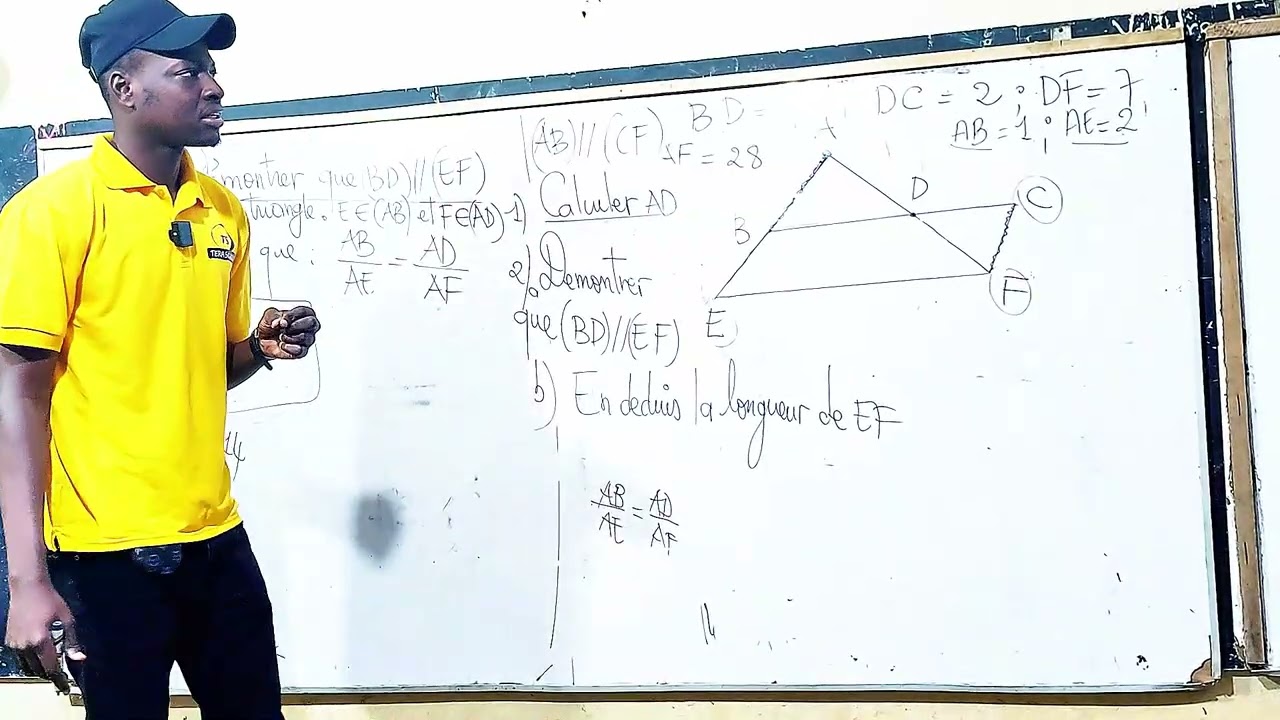 montrer que BD)//(EF)
triangle. E∈(AB) et F∈(AD)
que : AB/AE = AD/AF
14
(AB)//(CF)
BD=
AF = 28
1) Calculer AD
2) Demontrer
que (BD)//(EF)
b) En deduis la longueur de EF
AB/AE = AD/AF
14
DC = 2 ; DF = 7
AB = 1 ; AE = 2
A
D
C
B
E
F